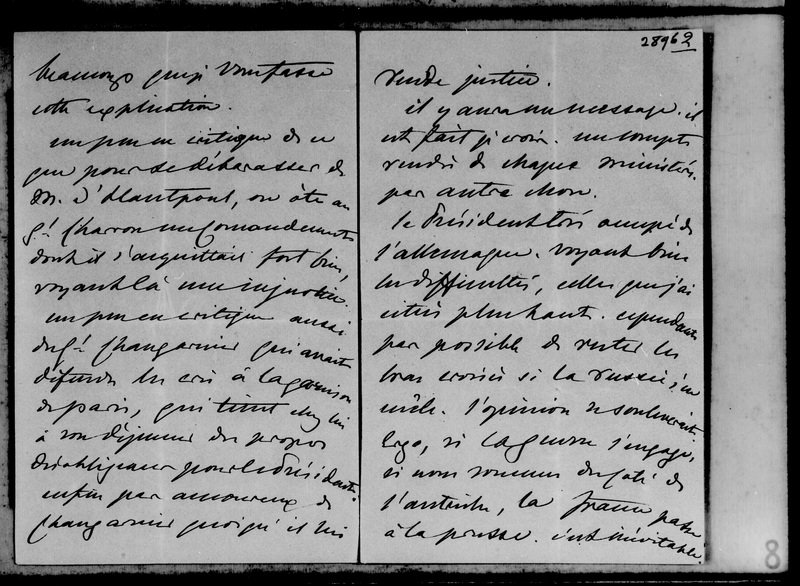 beaucoup qu'il vous fasse
cette explication.
un peu en critique de ce
que pour se débarasser de
M. d'hautpoul, on ôte au
gal Charron un Comandement
dont il s'acquittait fort bien,
voyant là une injustice.
un peu en critique aussi
du gal Changarnier qui avait
défendu les cris à la garnison
de paris, qui tient chez lui
à son déjeuner des propos
désobligeans pour le Président.
enfin pas amoureux de
Changarnier quoiqu'il lui
28962
rende justice.
il y aura un message. il
est fait je crois. un compte
rendu de chaque ministère.
pas autre chose.
le Président très occupé de
l'allemagne. voyant bien
les difficultés, celles que j'ai
citées plus haut. cependant
pas possible de rester les
bras croisés si la russie s'en
mêle. l'opinion se souleverait.
ergo, si la guerre s'engage,
si nous sommes du côté de
l'autriche, la france passe
à la prusse. c'est inévitable.
8